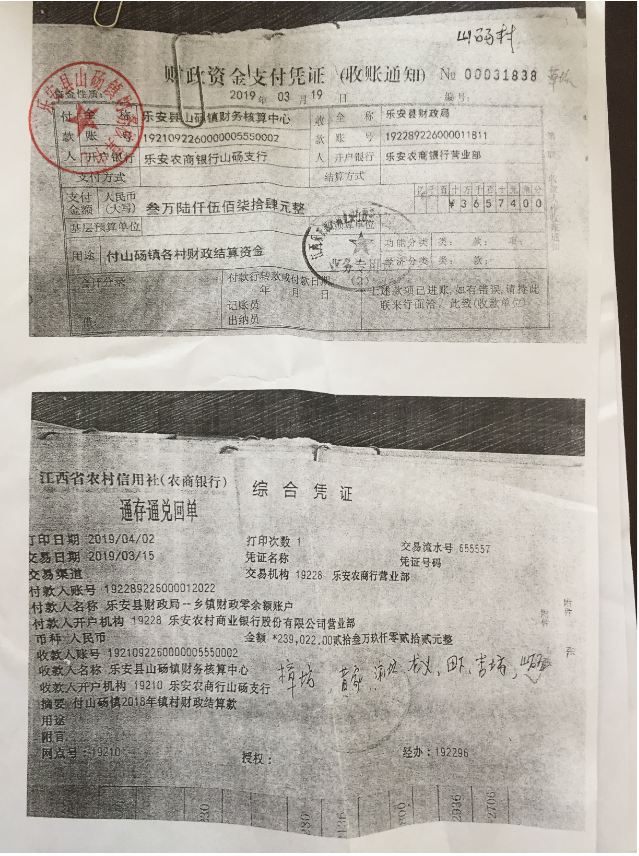 山砀村
财政资金支付凭证 (收账通知) No 00031838
2019年 03月 19日 编号:
资金性质:
付 全 称 乐安县山砀镇财务核算中心 收 全 称 乐安县财政局
款 账 号 192109226000005550002 款 账 号 192289226000011811
人 开户银行 乐安农商银行山砀支行 人 开户银行 乐安农商银行营业部
支付方式 结算方式
支付 人民币
金额 (大写) 叁万陆仟伍佰柒拾肆元整 ¥3657400
亿千百十万千百十元角分
基层预算单位
用途 付山砀镇各村财政结算资金 功能分类 类: 款: 项:
经济分类 类: 款:
会计分录 付款行转款或付款日期
年 月 日
上述款项已进账,如有错误,请持此
联来行面洽。此致(收款单位)
记账员
出纳员
借:
乐安县山砀镇
业务专用
(2)
江西省农村信用社(农商银行) 综合凭证
通存通兑回单
打印日期 2019/04/02 打印次数 1 交易流水号 655557
交易日期 2019/03/15 凭证名称 凭证号码
交易渠道 交易机构 19228 乐安农商行营业部
付款人账号 192289226000012022
付款人名称 乐安县财政局--乡镇财政零余额账户
付款人开户机构 19228 乐安农村商业银行股份有限公司营业部
币种 人民币 金额 *239,022.00贰拾叁万玖仟零贰拾贰元整
收款人账号 192109226000005550002
收款人名称 乐安县山砀镇财务核算中心
收款人开户机构 19210 乐安农商行山砀支行
摘要 付山砀镇2018年镇村财政结算款
用途
附言
网点号:19210 授权: 经办:192296
附件 张
2936
2706